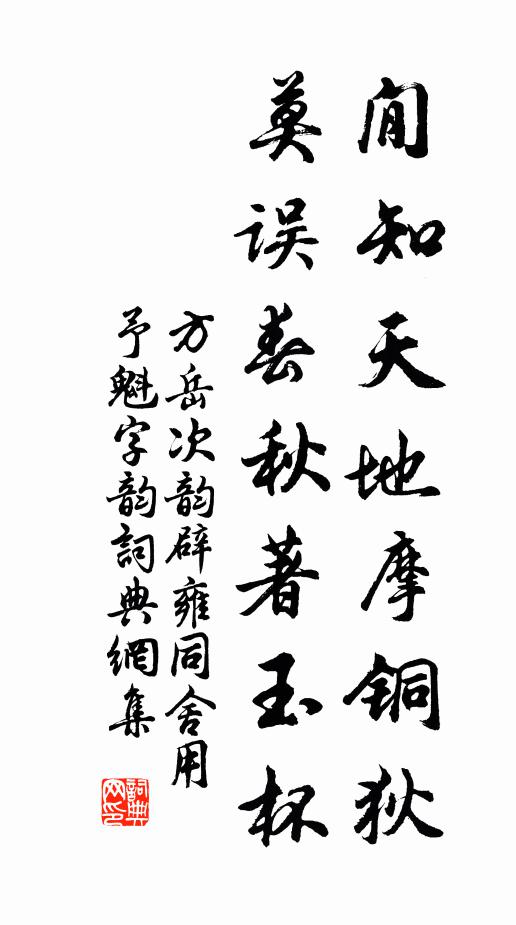 閒知天地摩铜狄
莫误春秋著玉杯
方岳次韵辟雍同舍用
予魁字韵詞典網集
詞典网印